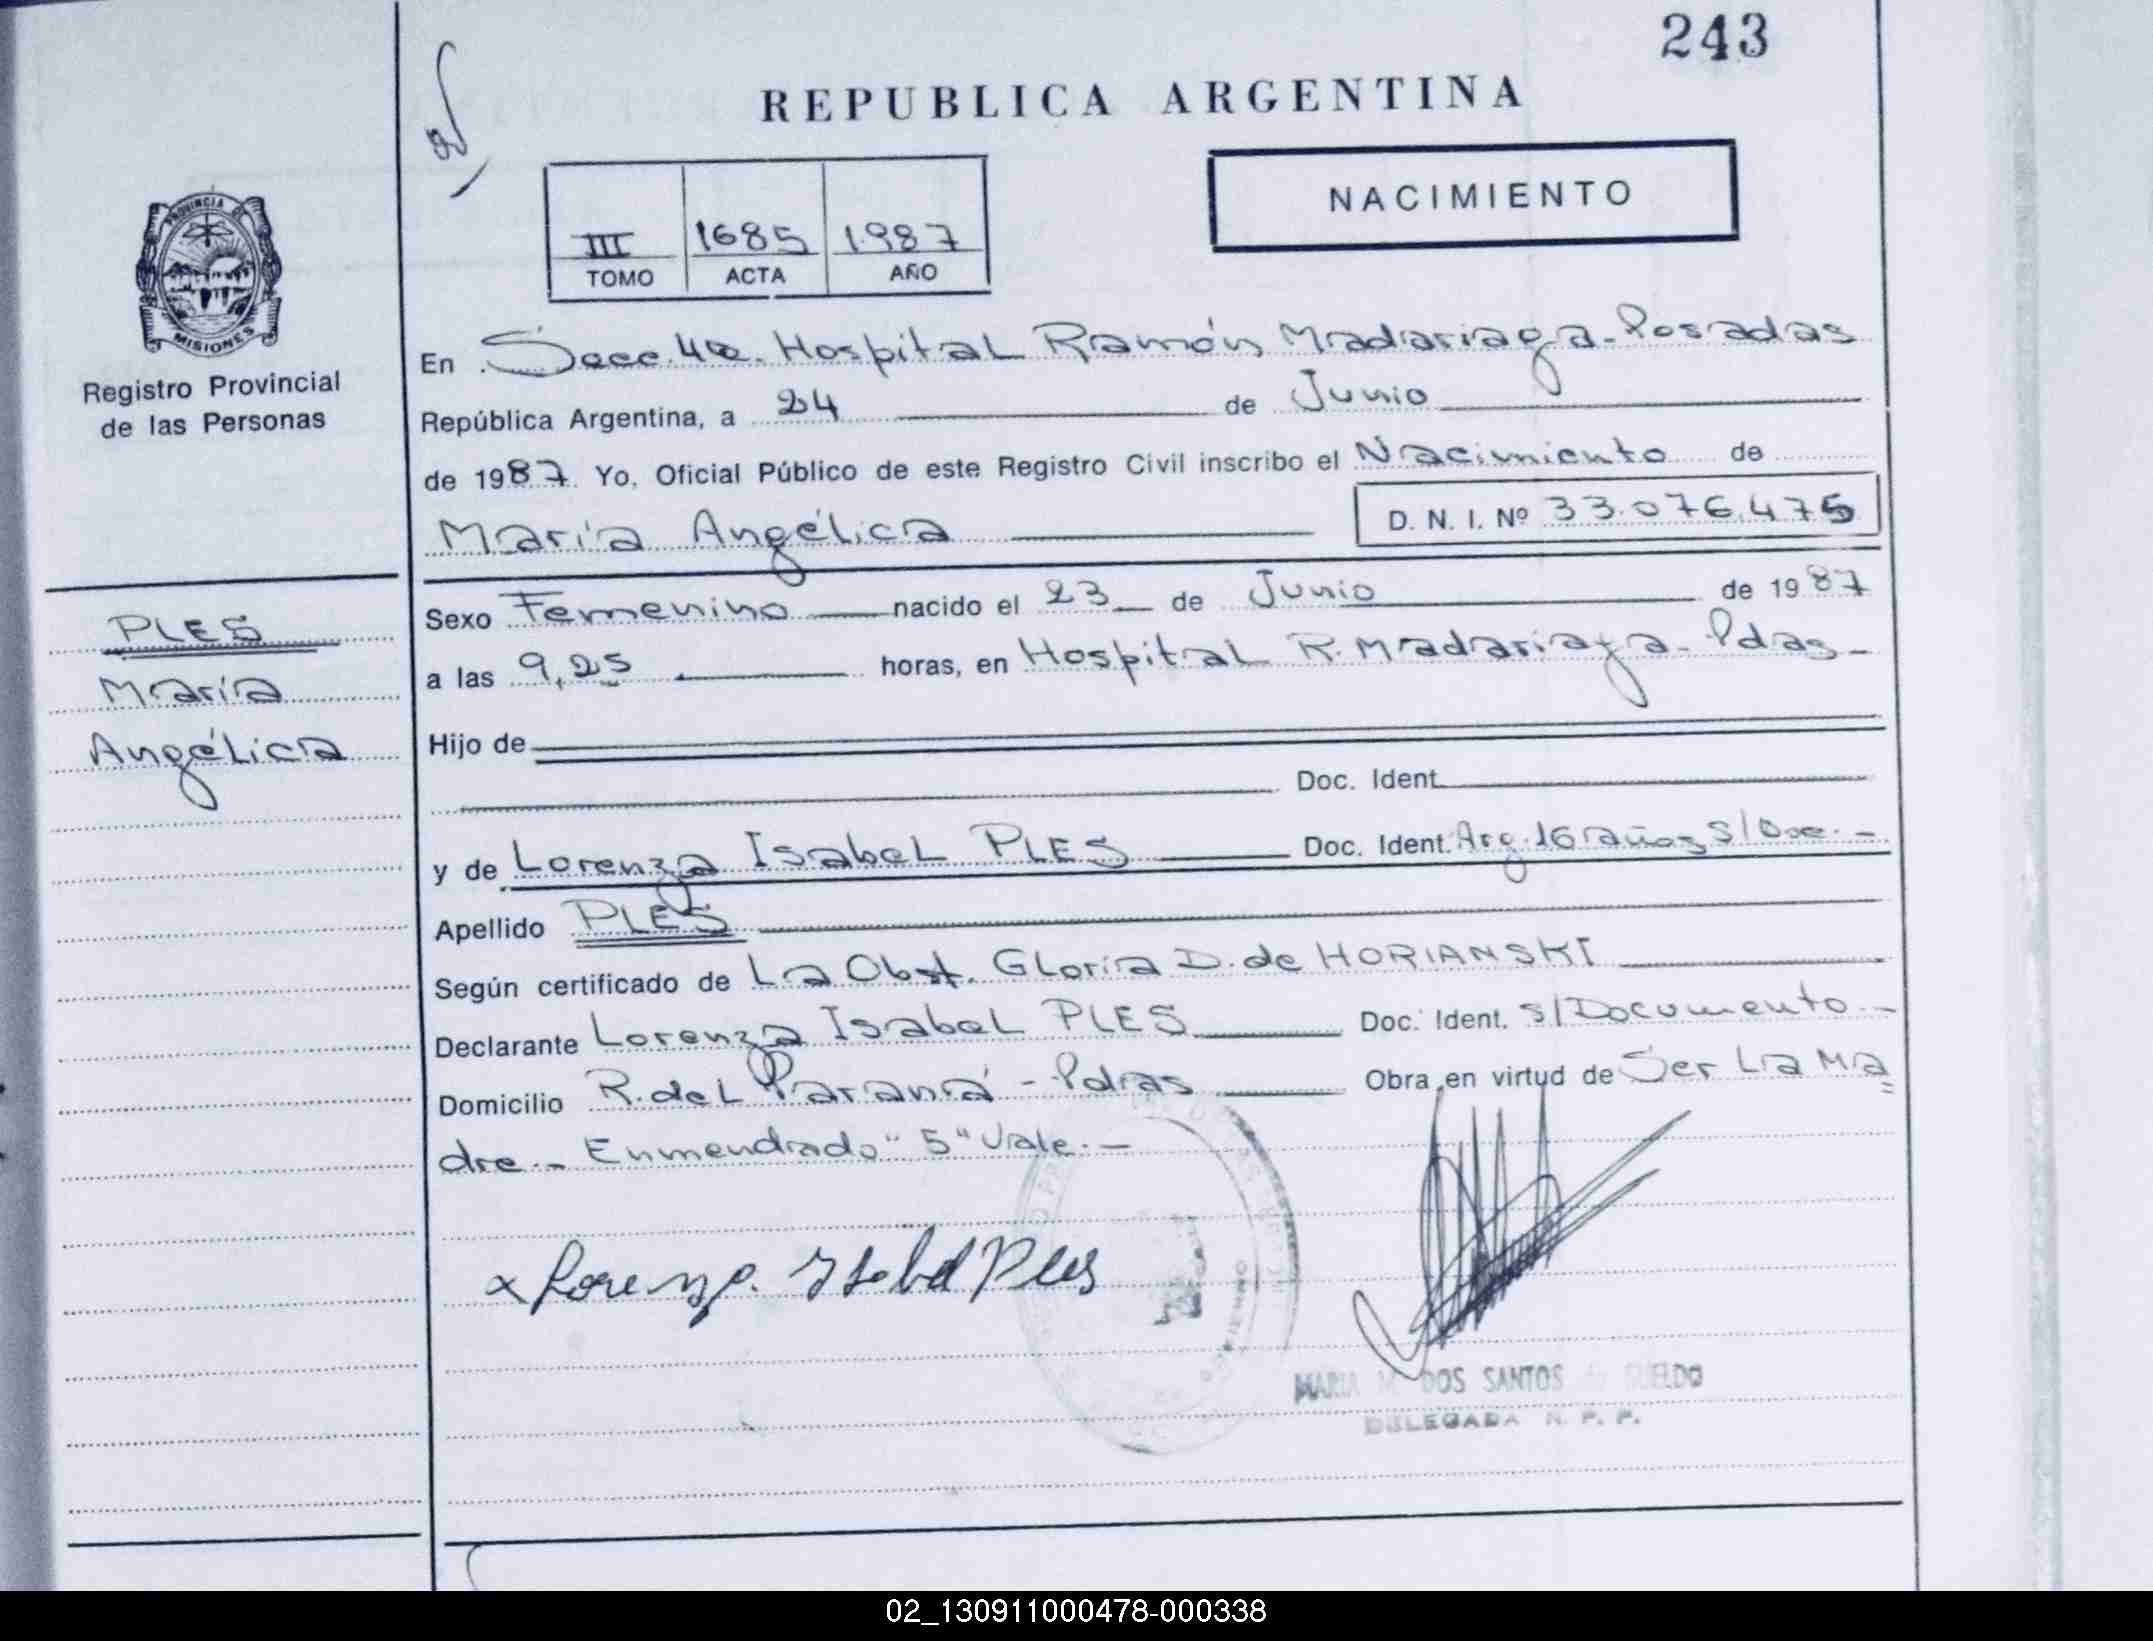 243
REPUBLICA ARGENTINA
NACIMIENTO
III 1685 1987
TOMO ACTA AÑO
PROVINCIA DE
MISIONES
Registro Provincial
de las Personas
PLES
María
Angélica
En Secc. 4a. Hospital Ramón Madariaga - Posadas
República Argentina, a 24 de Junio
de 1987. Yo, Oficial Público de este Registro Civil inscribo el Nacimiento de
María Angélica D. N. I. Nº 33.076.475
Sexo Femenino nacido el 23 de Junio de 1987
a las 9,25 horas, en Hospital R. Madariaga - Pdas -
Hijo de
Doc. Ident.
y de Lorenza Isabel PLES Doc. Ident. Arg. 16 años S/Doc. -
Apellido PLES
Según certificado de La Obst. Gloria D. de HORIANSKI
Declarante Lorenza Isabel PLES Doc. Ident. S/Documento -
Domicilio R. del Paraná - Pdas Obra en virtud de Ser La Ma
dre.- Enmendado "5" Vale.-
x Lorenza Isabel Ples
MARIA M. DOS SANTOS SUELDO
DELEGADA R. P. P.
02_130911000478-000338